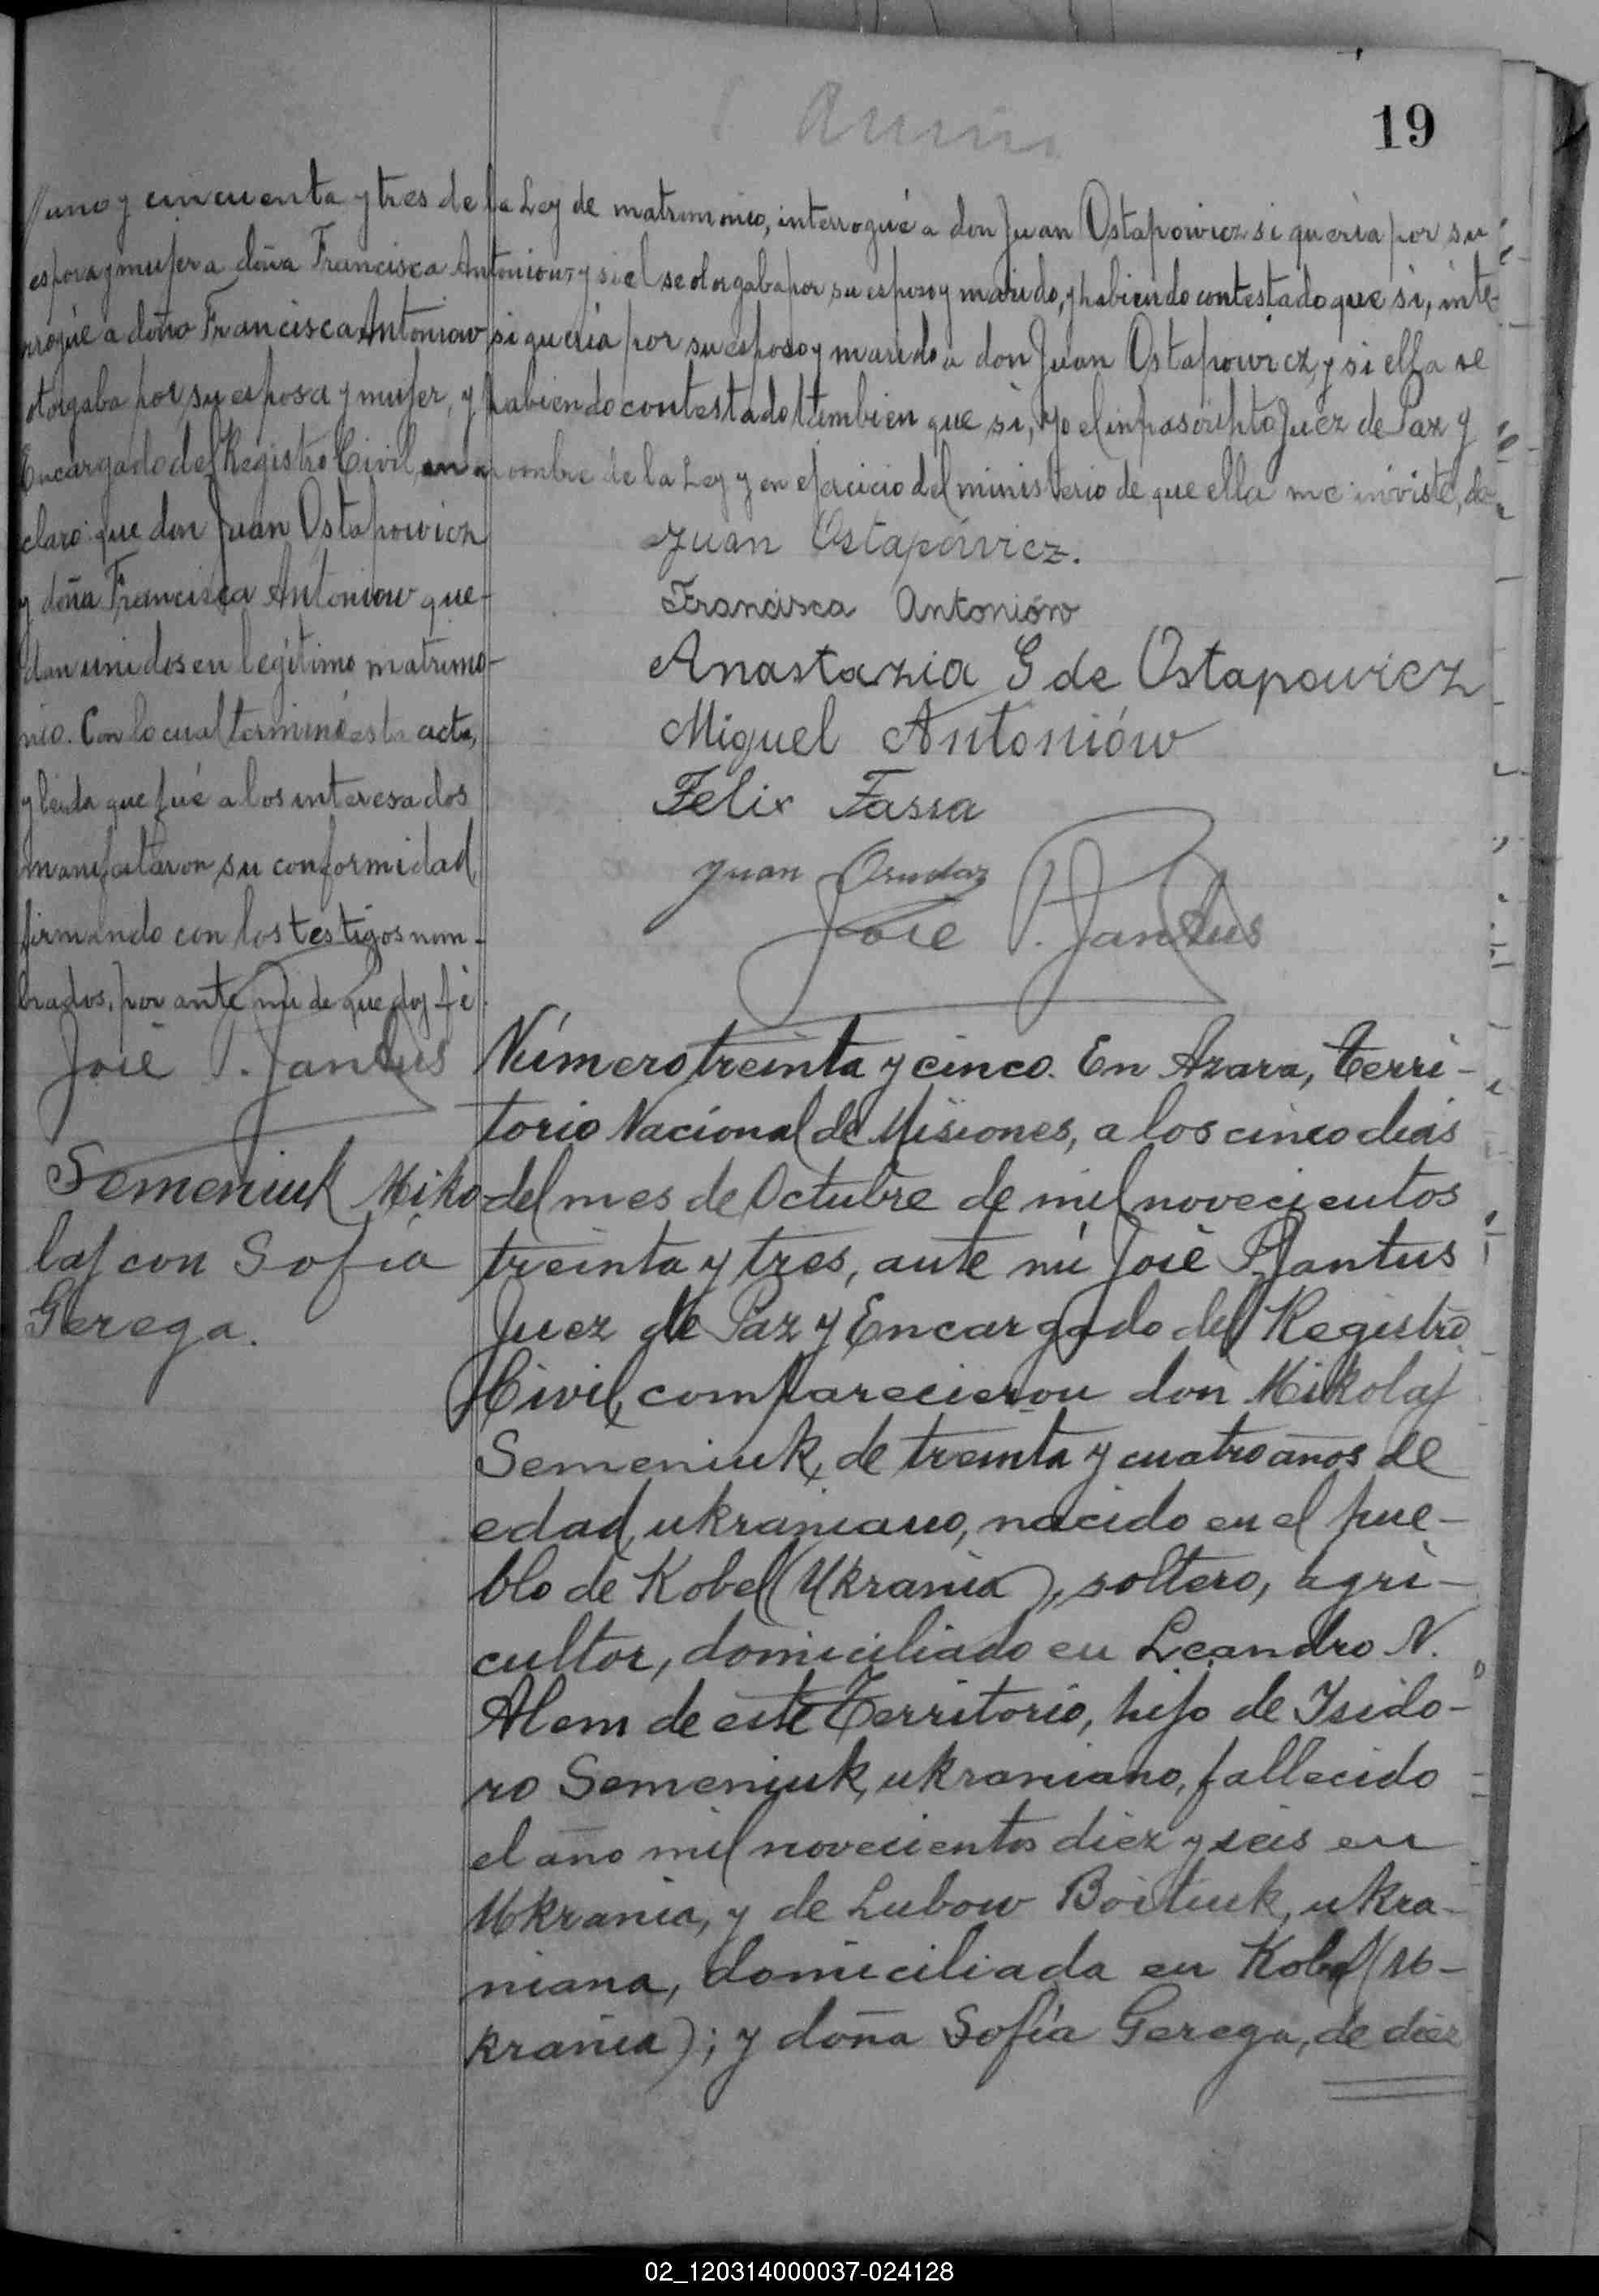 19
uno y cincuenta y tres de la Ley de matrimonio, interrogué a don Juan Ostapowicz si quería por su
esposa y mujer a doña Francisca Antoniow, y si el se otorgaba por su esposo y marido, y habiendo contestado que si, inte-
rrogué a doña Francisca Antoniow si quería por su esposo y marido a don Juan Ostapowicz, y si ella se
otorgaba por su esposa y mujer, y habiendo contestado tambien que si, yo el infrascripto Juez de Paz y
Encargado del Registro Civil, en nombre de la Ley y en ejercicio del ministerio de que ella me inviste, de-
claro: que don Juan Ostapowicz
y doña Francisca Antoniow que-
dan unidos en legítimo matrimo-
nio. Con lo cual terminó esta acta,
y leida que fué a los interesados
manifestaron su conformidad,
firmando con los testigos nom-
brados, por ante mi de que doy fé.
José P. Jantus
Juan Ostapówicz.
Francisca Antonión
Anastazia G de Ostapowicz
Miguel Antoniów
Felix Fassa
Juan
José P. Jantus
Semeniuk Miko
laj con Sofía
Gerega.
Número treinta y cinco. En Azara, Terri-
torio Nacional de Misiones, a los cinco dias
del mes de Octubre de mil novecientos
treinta y tres, ante mí José P. Jantus
Juez de Paz y Encargado del Registro
Civil, comparecieron don Mikolaj
Semeniuk, de treinta y cuatro años de
edad, ukraniano, nacido en el pue-
blo de Kobel (Ukrania), soltero, agri-
cultor, domiciliado en Leandro N.
Alem de este Territorio, hijo de Isido-
ro Semeniuk, ukraniano, fallecido
el año mil novecientos diez y seis en
Ukrania, y de Lubow Boituk, ukra-
niana, domiciliada en Kobel (U-
krania); y doña Sofía Gerega, de diez
02_120314000037-024128